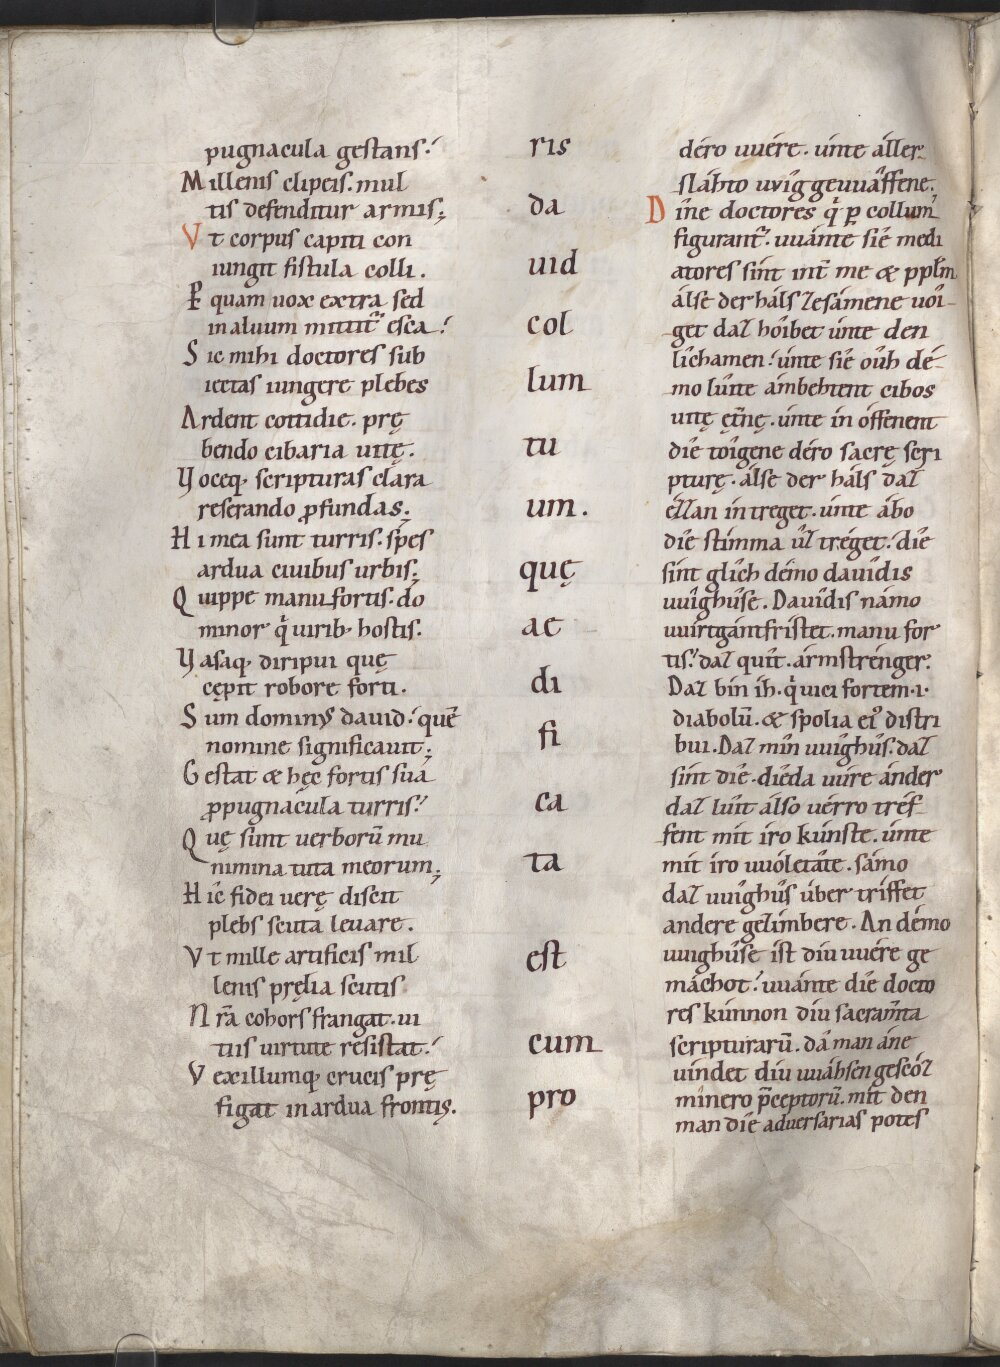 pugnacula gestans.
Millenis clipeis. mul
tis defenditur armis;
Vt corpus capiti con
iungit fistula colli.
P̱ quam uox extra sed
in aluum mittit᷑ esca.
Sic mihi doctores sub
iectas iungere plebes
Ardent cottidie. prę
bendo cibaria uitę.
Voceq; scripturas clara
reserando ꝓfundas.
Hi mea sunt turris. sp̄es
ardua ciuibus urbis;
Quippe manu fortis. do
minor q̇ uirib; hostis.
Vasaq; diripui quę
cępit robore forti.
Sum dominus dauid. quē
nomine significauit;
Gestat & hęc fortis sua
ꝓpugnacula turris.
Quę sunt uerborū mu
nimina tuta meorum;
Hic fidei uerę discit
plebs scuta leuare.
Vt mille artificis mil
lenis pręlia scutis
Nr̄a cohors frangat. ui
tiis uirtute resistat.
Vexillumq; crucis prę
figat in ardua frontis.
ris
da
uid
col
lum
tu
um.
quę
ae
di
fi
ca
ta
est
cum
pro
déro uuére. únte áller
sláhto uuîg geuuâffene.
Dîne doctores q̇ ꝑ collum
figurant᷑. uuánte sîe medi
atores sint int̄ me & pplm̄
álse der háls zesámene uoî
get daz hoîbet únte den
lîchamen. únte sîe oûh dé
mo lûite ámbehtent cibos
uitę ęt̄nę. únte in óffenent
dîe toîgene déro sacrę scri
pturę. álse der háls daz
ézzan in treget. únte ábo
dîe stimma ûz tréget. dîe
sint glîch démo dauîdis
uuîghûse. Dauîdis námo
uuirt gántfristet. manu for
tis. daz quît. ármstrénger.
Daz bin íh. q̇ uici fortem .i.
diabolū. & spolia ei᷒ distri
bui. Daz mîn uuîghûs. daz
sint dîe. dîeda uúre ánder
daz lûit álso uérro tréf
fent mit íro kúnste. únte
mit íro uuóletâte. sámo
daz uuîghûs úber tríffet
andere gezímbere. An démo
uuighûse ist diu uuére ge
máchot. uuánte die docto
res kúnnon diu sacram̄ta
scripturarū. dâ man âne
uindet diu uuâbsen gescôz
minero p̄ceptorū. mit den
man dîe aduersarias potes